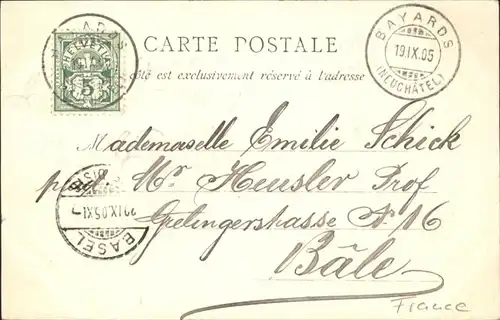 CARTE POSTALE
côté est exclusivement réservé à l'adresse
HELVETIA
5
BAYARDS
19 IX.05
(NEUCHÂTEL)
Mademaselle Emilie Schick
Mr Heusler Prof
Grelingerstrasse N 16
Bâle
BASEL
France